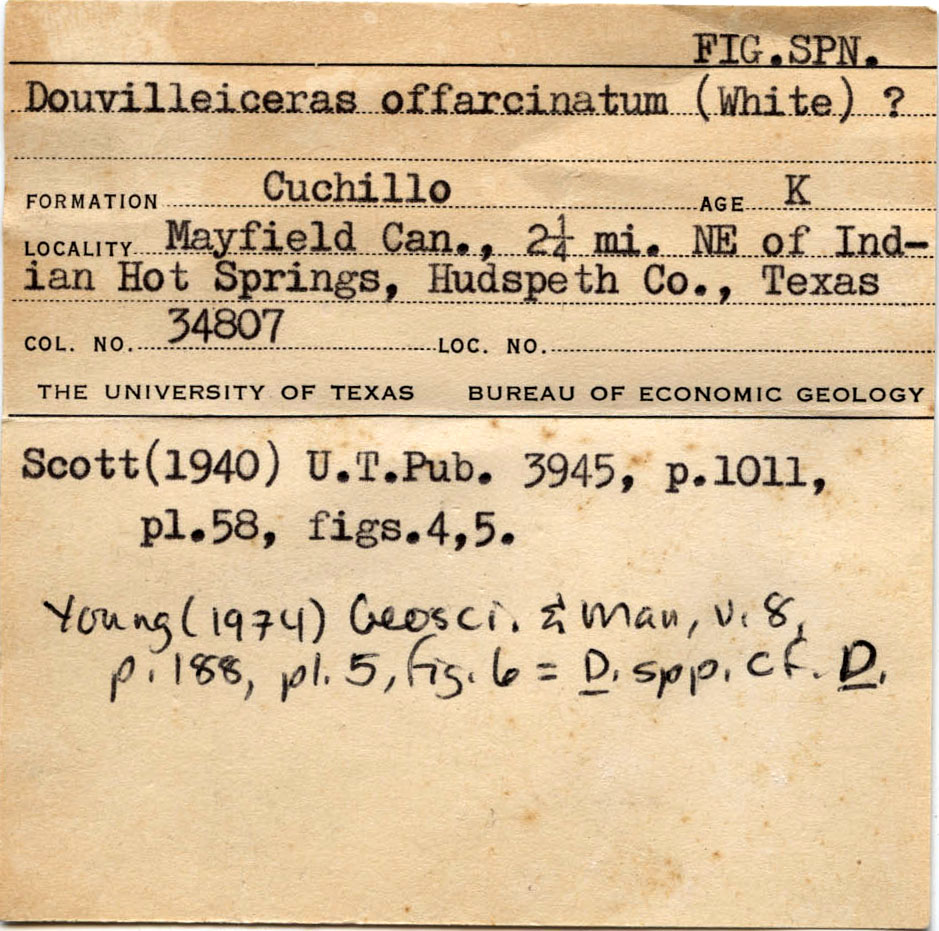 FIG.SPN.
Douvilleiceras offarcinatum (White) ?
FORMATION Cuchillo AGE K
LOCALITY Mayfield Can., 2¼ mi. NE of Ind-
ian Hot Springs, Hudspeth Co., Texas
COL. NO. 34807 LOC. NO.
THE UNIVERSITY OF TEXAS BUREAU OF ECONOMIC GEOLOGY
Scott(1940) U.T.Pub. 3945, p.1011,
pl.58, figs.4,5.
Young(1974) Geosci. & Man, v. 8,
p. 188, pl. 5, fig. 6 = D. spp. cf. D.